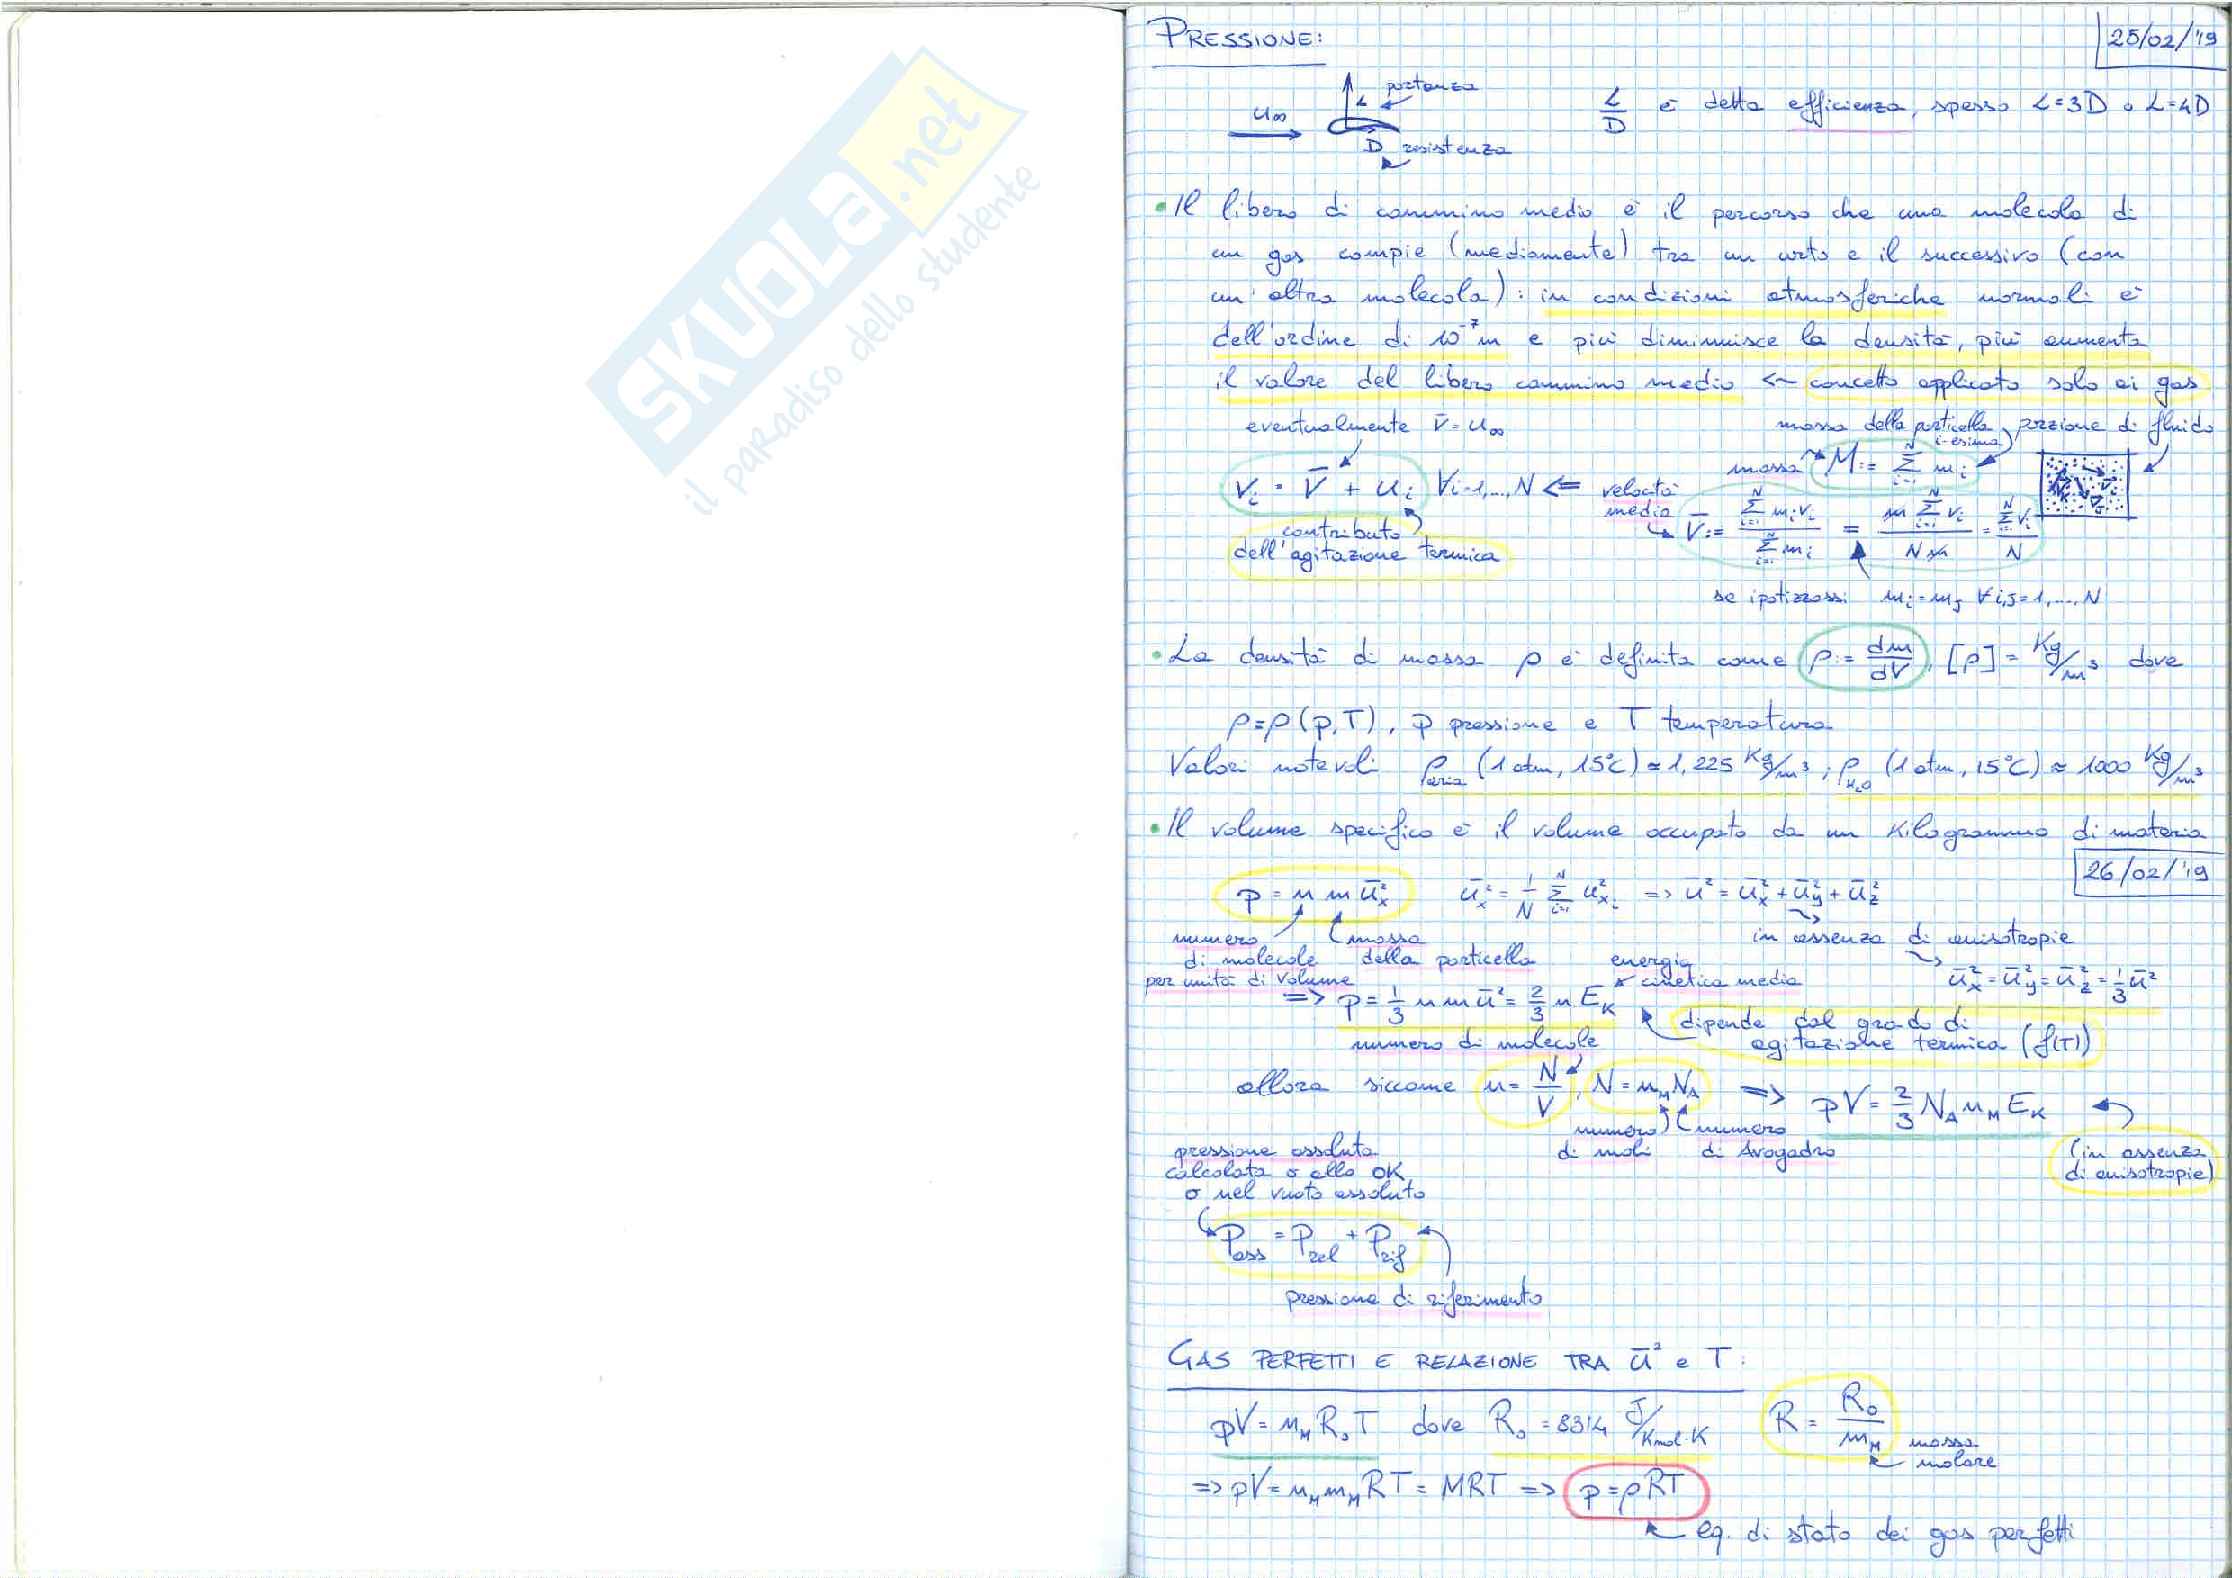 SKUOLA.net
il paradiso dello studente
PRESSIONE:
25/02/'19
portanza
L
u∞
D resistenza
L/D è detta efficienza, spesso L=3D o L=4D
• Il libero di cammino medio è il percorso che una molecola di
un gas compie (mediamente) tra un urto e il successivo (con
un'altra molecola): in condizioni atmosferiche normali è
dell'ordine di 10⁻⁷m e più diminuisce la densità, più aumenta
il valore del libero cammino medio <~ concetto applicato solo ai gas
eventualmente v̄=u∞
massa della particella i-esima
porzione di fluido
massa M:= Σᵢ₌₁ᴺ mᵢ
vᵢ = v̄ + uᵢ ∀i=1,...,N <=
velocità media
v̄:= Σᵢ₌₁ᴺ mᵢvᵢ / Σᵢ₌₁ᴺ mᵢ = m Σᵢ₌₁ᴺ vᵢ / N m = Σᵢ₌₁ᴺ vᵢ / N
contributo
dell'agitazione termica
se ipotizzassi mᵢ=mⱼ ∀i,j=1,...,N
• La densità di massa ρ è definita come ρ:= dm/dV, [ρ]= Kg/m³ dove
ρ=ρ(p,T), p pressione e T temperatura
Valori notevoli ρaria (1 atm, 15°C)≃1,225 Kg/m³; ρH₂O (1 atm, 15°C)≃1000 Kg/m³
• Il volume specifico è il volume occupato da un Kilogrammo di materia
26/02/'19
p = n m ūx² ūx² = 1/N Σᵢ₌₁ᴺ u²xᵢ => ū² = ūx²+ūy²+ūz²
numero
di molecole
per unità di volume
massa
della particella
in assenza di anisotropie
ūx²=ūy²=ūz²=1/3 ū²
energia
cinetica media
=> p= 1/3 n m ū² = 2/3 n EK
dipende dal grado di
agitazione termica (f(T))
numero di molecole
allora siccome n= N/V, N=nM NA => pV= 2/3 NA nM EK
numero
di moli
numero
di Avogadro
(in assenza
di anisotropie)
pressione assoluta
calcolata o allo 0K,
o nel vuoto assoluto
Pass = Prel + Prif
pressione di riferimento
GAS PERFETTI E RELAZIONE TRA ū² e T:
pV= nM R₀T dove R₀ = 8314 J/Kmol·K R = R₀/mM
massa
molare
=> pV= nM mM RT = MRT => p=ρRT
eq. di stato dei gas perfetti